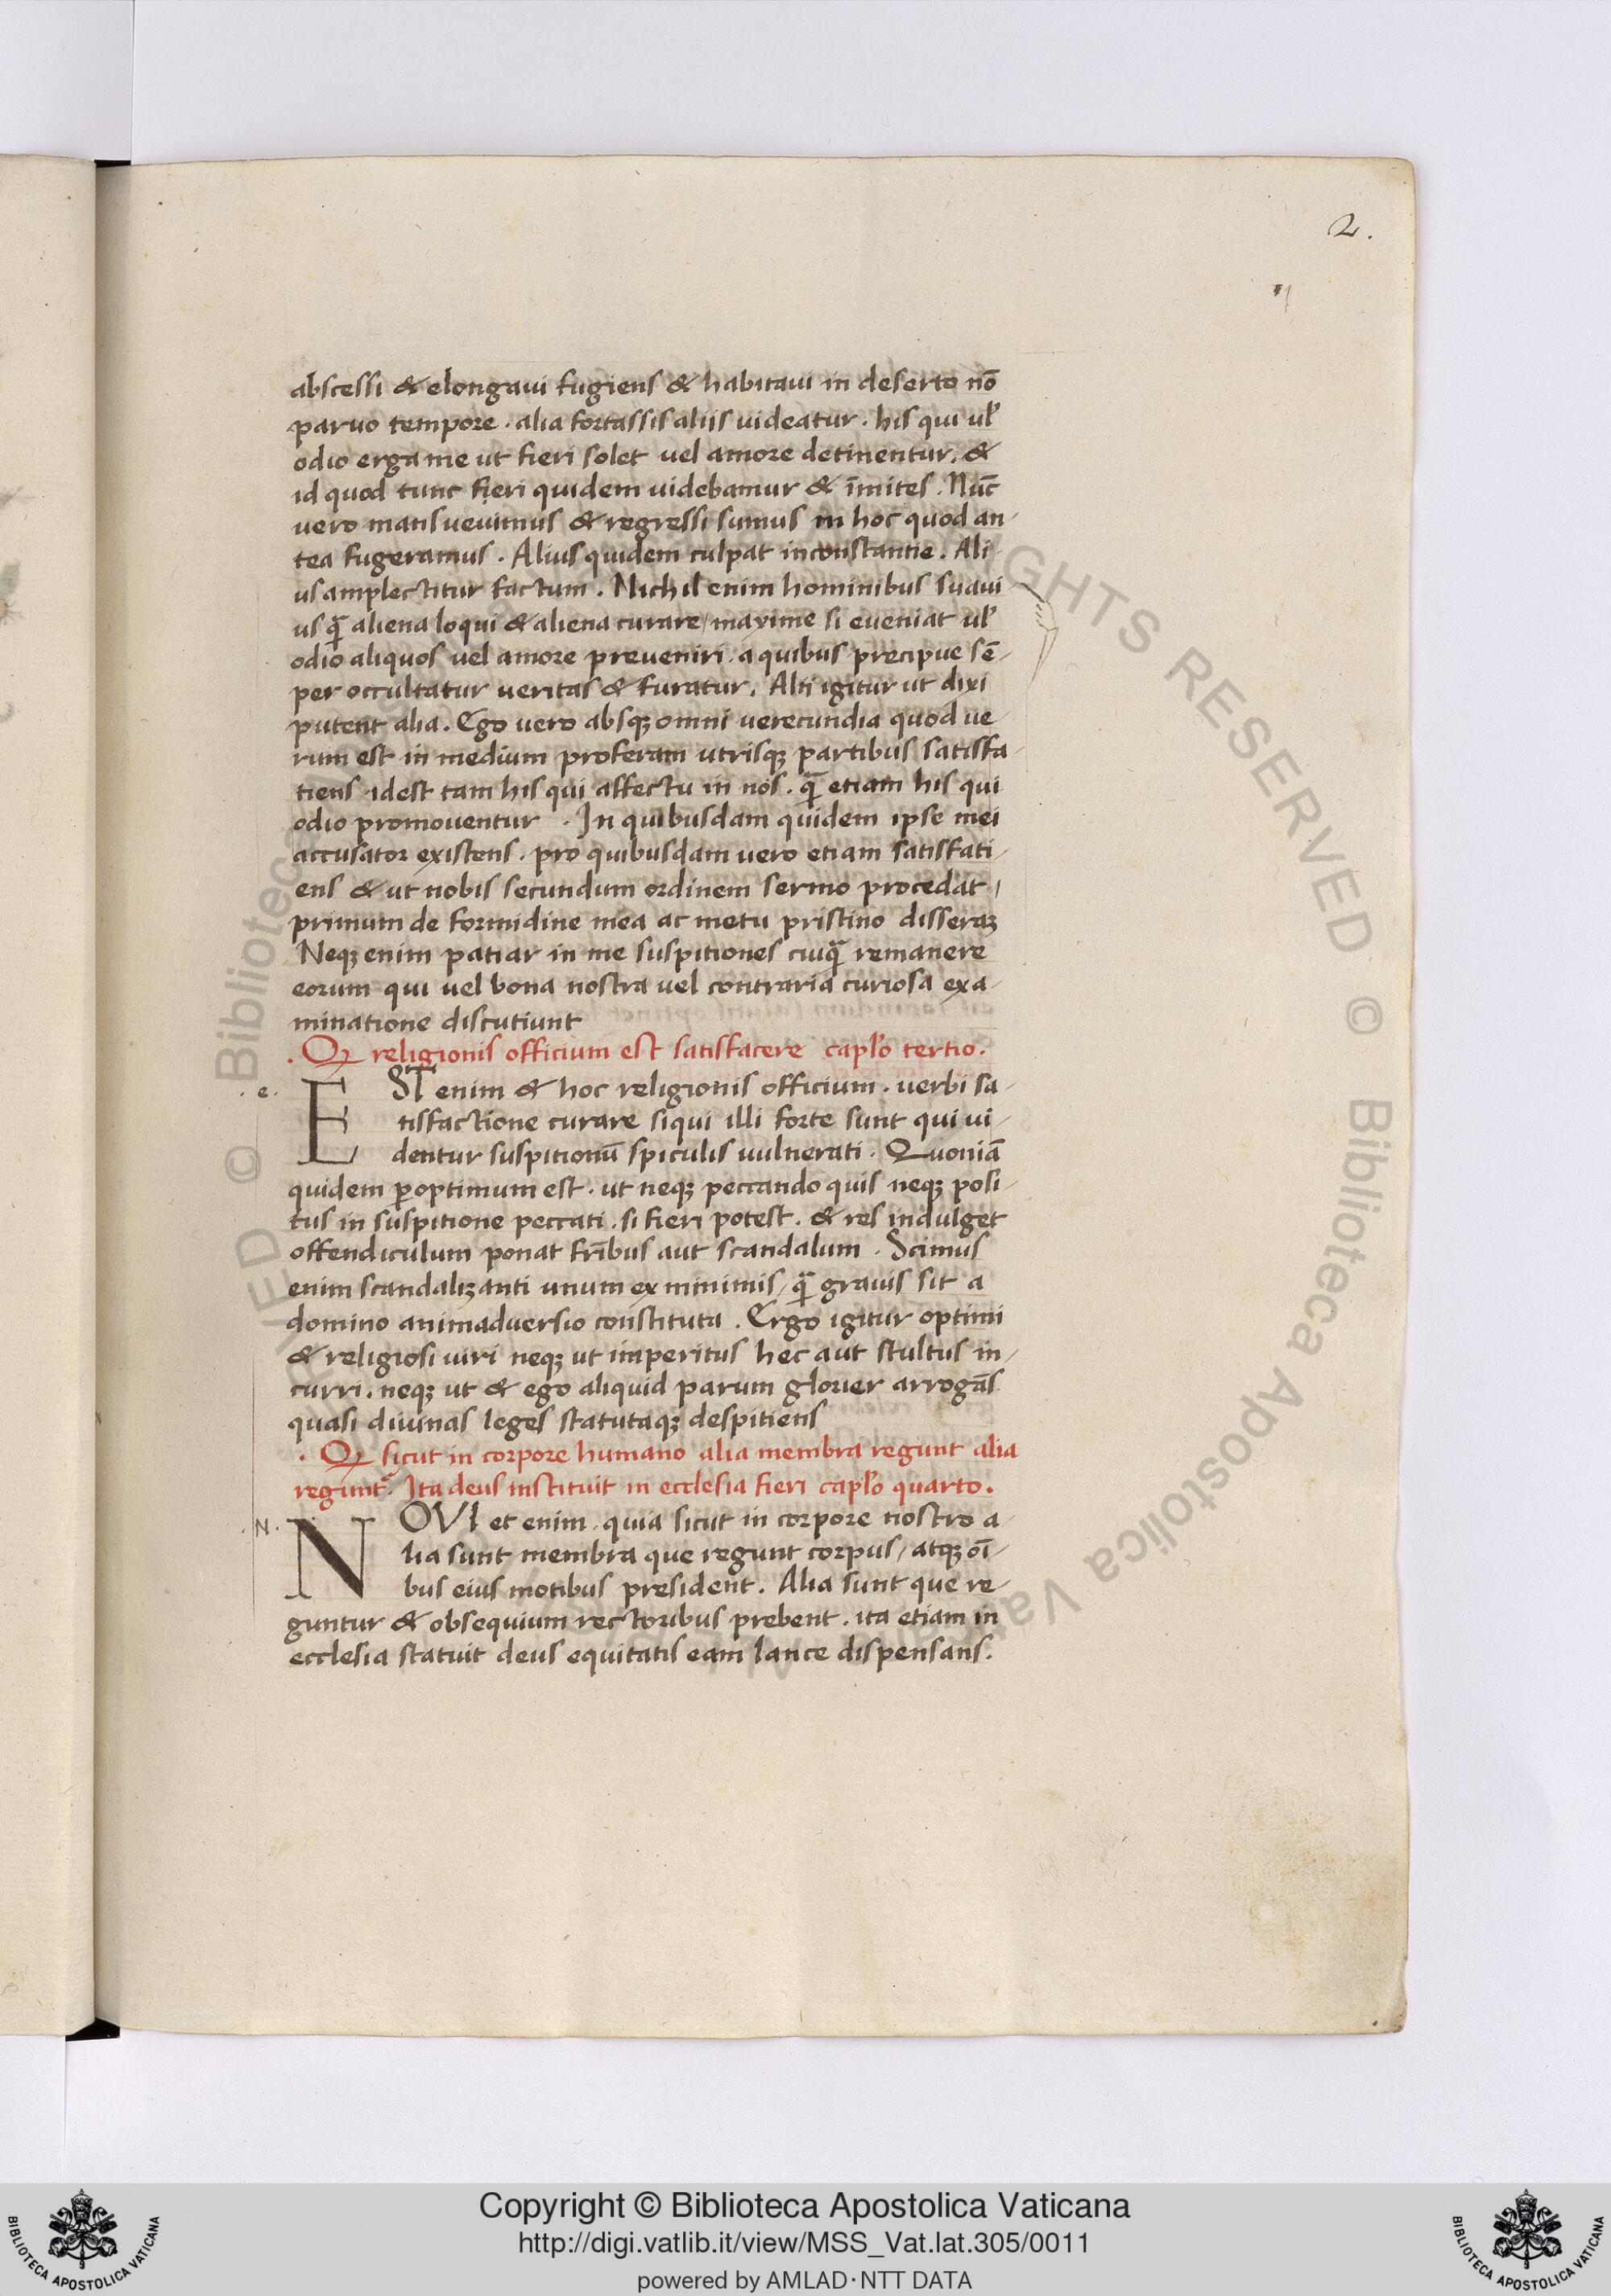 2.
abscessi & elongaui fugiens & habitaui in deserto nō
paruo tempore . alia fortassis aliis uideatur . his qui ul'
odio erga me ut fieri solet uel amore detinentur. &
id quod tunc fieri quidem uidebamur & īmites . Nūc
uero mansueuimus & regressi sumus in hoc quod an-
tea fugeramus . Alius quidem culpat inconstantie . Ali-
us amplectitur factum . Nichil enim hominibus suaui
us q̄ aliena loqui & aliena curare / maxime si eueniat ul'
odio aliquos uel amore preueniri . a quibus precipue sē-
per occultatur ueritas & furatur. Alti igitur ut dixi
putent alia . Ego uero absqꝫ omni uerecundia quod ue-
rum est in medium proferam utrisqꝫ partibus satisfa-
tiens . idest tam his qui affectu in nos . q̄ etiam his qui
odio promouentur . In quibusdam quidem ipse mei
accusator existens . pro quibusdam uero etiam satisfati-
ens & ut nobis secundum ordinem sermo procedat /
primum de formidine mea ac metu pristino disseraꝫ
Neqꝫ enim patiar in me suspitiones cuiq̄ remanere
eorum qui uel bona nostra uel contraria curiosa exa-
minatione discutiunt
. Qꝫ religionis officium est satisfacere capl'o tertio .
. e .
EST enim & hoc religionis officium . uerbi sa-
tisfactione curare siqui illi forte sunt qui ui-
dentur suspitionū spiculis uulnerati . Quoniā
quidem ꝑoptimum est . ut neqꝫ peccando quis neqꝫ posi-
tus in suspitione peccati . si fieri potest . & res indulget
offendiculum ponat fr̄ibus aut scandalum . Scimus
enim scandalizanti unum ex minimis / q̄ grauis sit a
domino animaduersio constituta . Ergo igitur optimi
& religiosi uiri neqꝫ ut imperitus hec aut stultus in-
curri . neqꝫ ut & ego aliquid parum glorier arrogās
quasi diuinas leges statutaqꝫ despitiens
. Qꝫ sicut in corpore humano alia membra regunt alia
regunt᷑. Ita deus instituit in ecclesia fieri capl'o quarto .
. N .
NOVI et enim . quia sicut in corpore nostro a-
lia sunt membra que regunt corpus / atqꝫ oī-
bus eius motibus president . Alia sunt que re-
guntur & obsequium rectoribus prebent . ita etiam in
ecclesia statuit deus equitatis eam lance dispensans .
RIGHTS RESERVED © Biblioteca Apostolica Vaticana
Copyright © Biblioteca Apostolica Vaticana
http://digi.vatlib.it/view/MSS_Vat.lat.305/0011
powered by AMLAD·NTT DATA
BIBLIOTECA APOSTOLICA VATICANA
BIBLIOTECA APOSTOLICA VATICANA